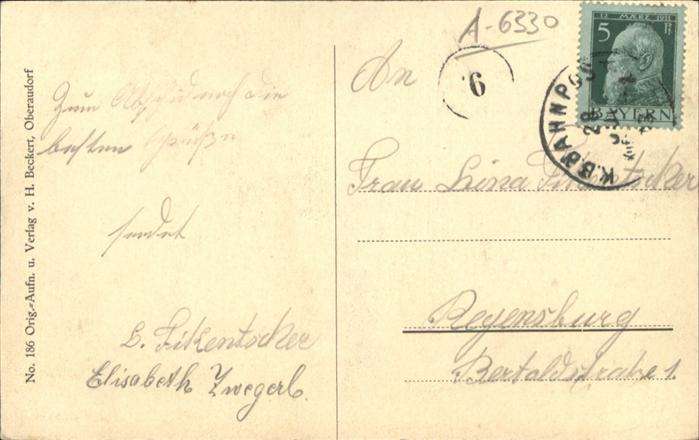 No. 186 Orig.-Aufn. u. Verlag v. H. Beckert, Oberaudorf
A-6330
12. MÄRZ 1911
5 Pf
BAYERN
K.B. BAHNPOST
28
6.
Zum Abschied noch die
besten Grüße
sendet
L. Fikentscher
Elisabeth Zwegerl.
An
Frau Lina Fikentscher
Regensburg
Bertoldstraße 1.